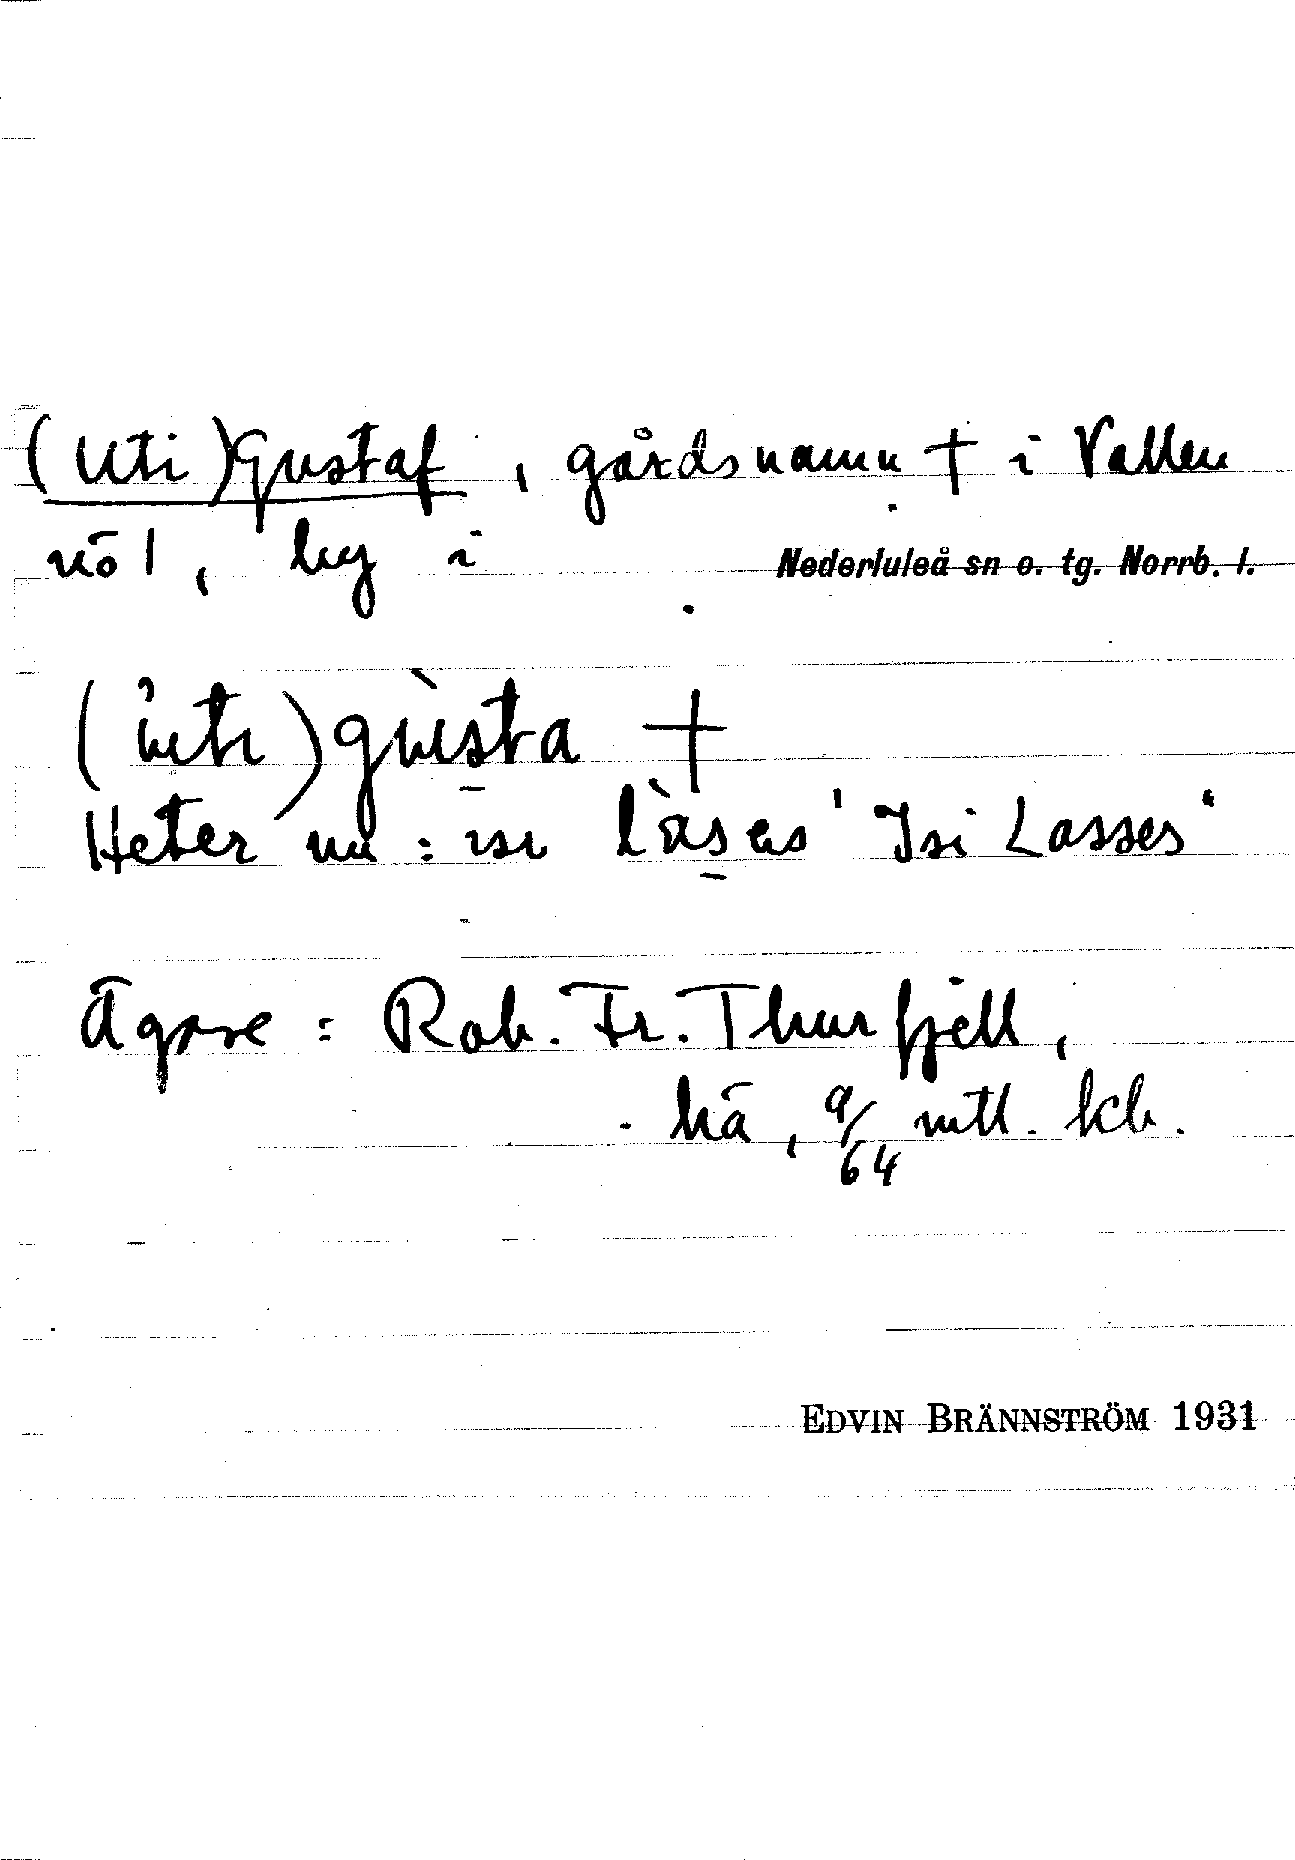 (Uti)Gustaf, gårdsnamn † i Vallen
nö 1, by i Nederluleå sn o. tg. Norrb. l.
(ùti)gùsta †
Heter nu: isi làsas 'Isi Lasses'
Ägare: Rob. Fr. Thurfjell,
hä, 9/64 mtl. kb.
EDVIN BRÄNNSTRÖM 1931